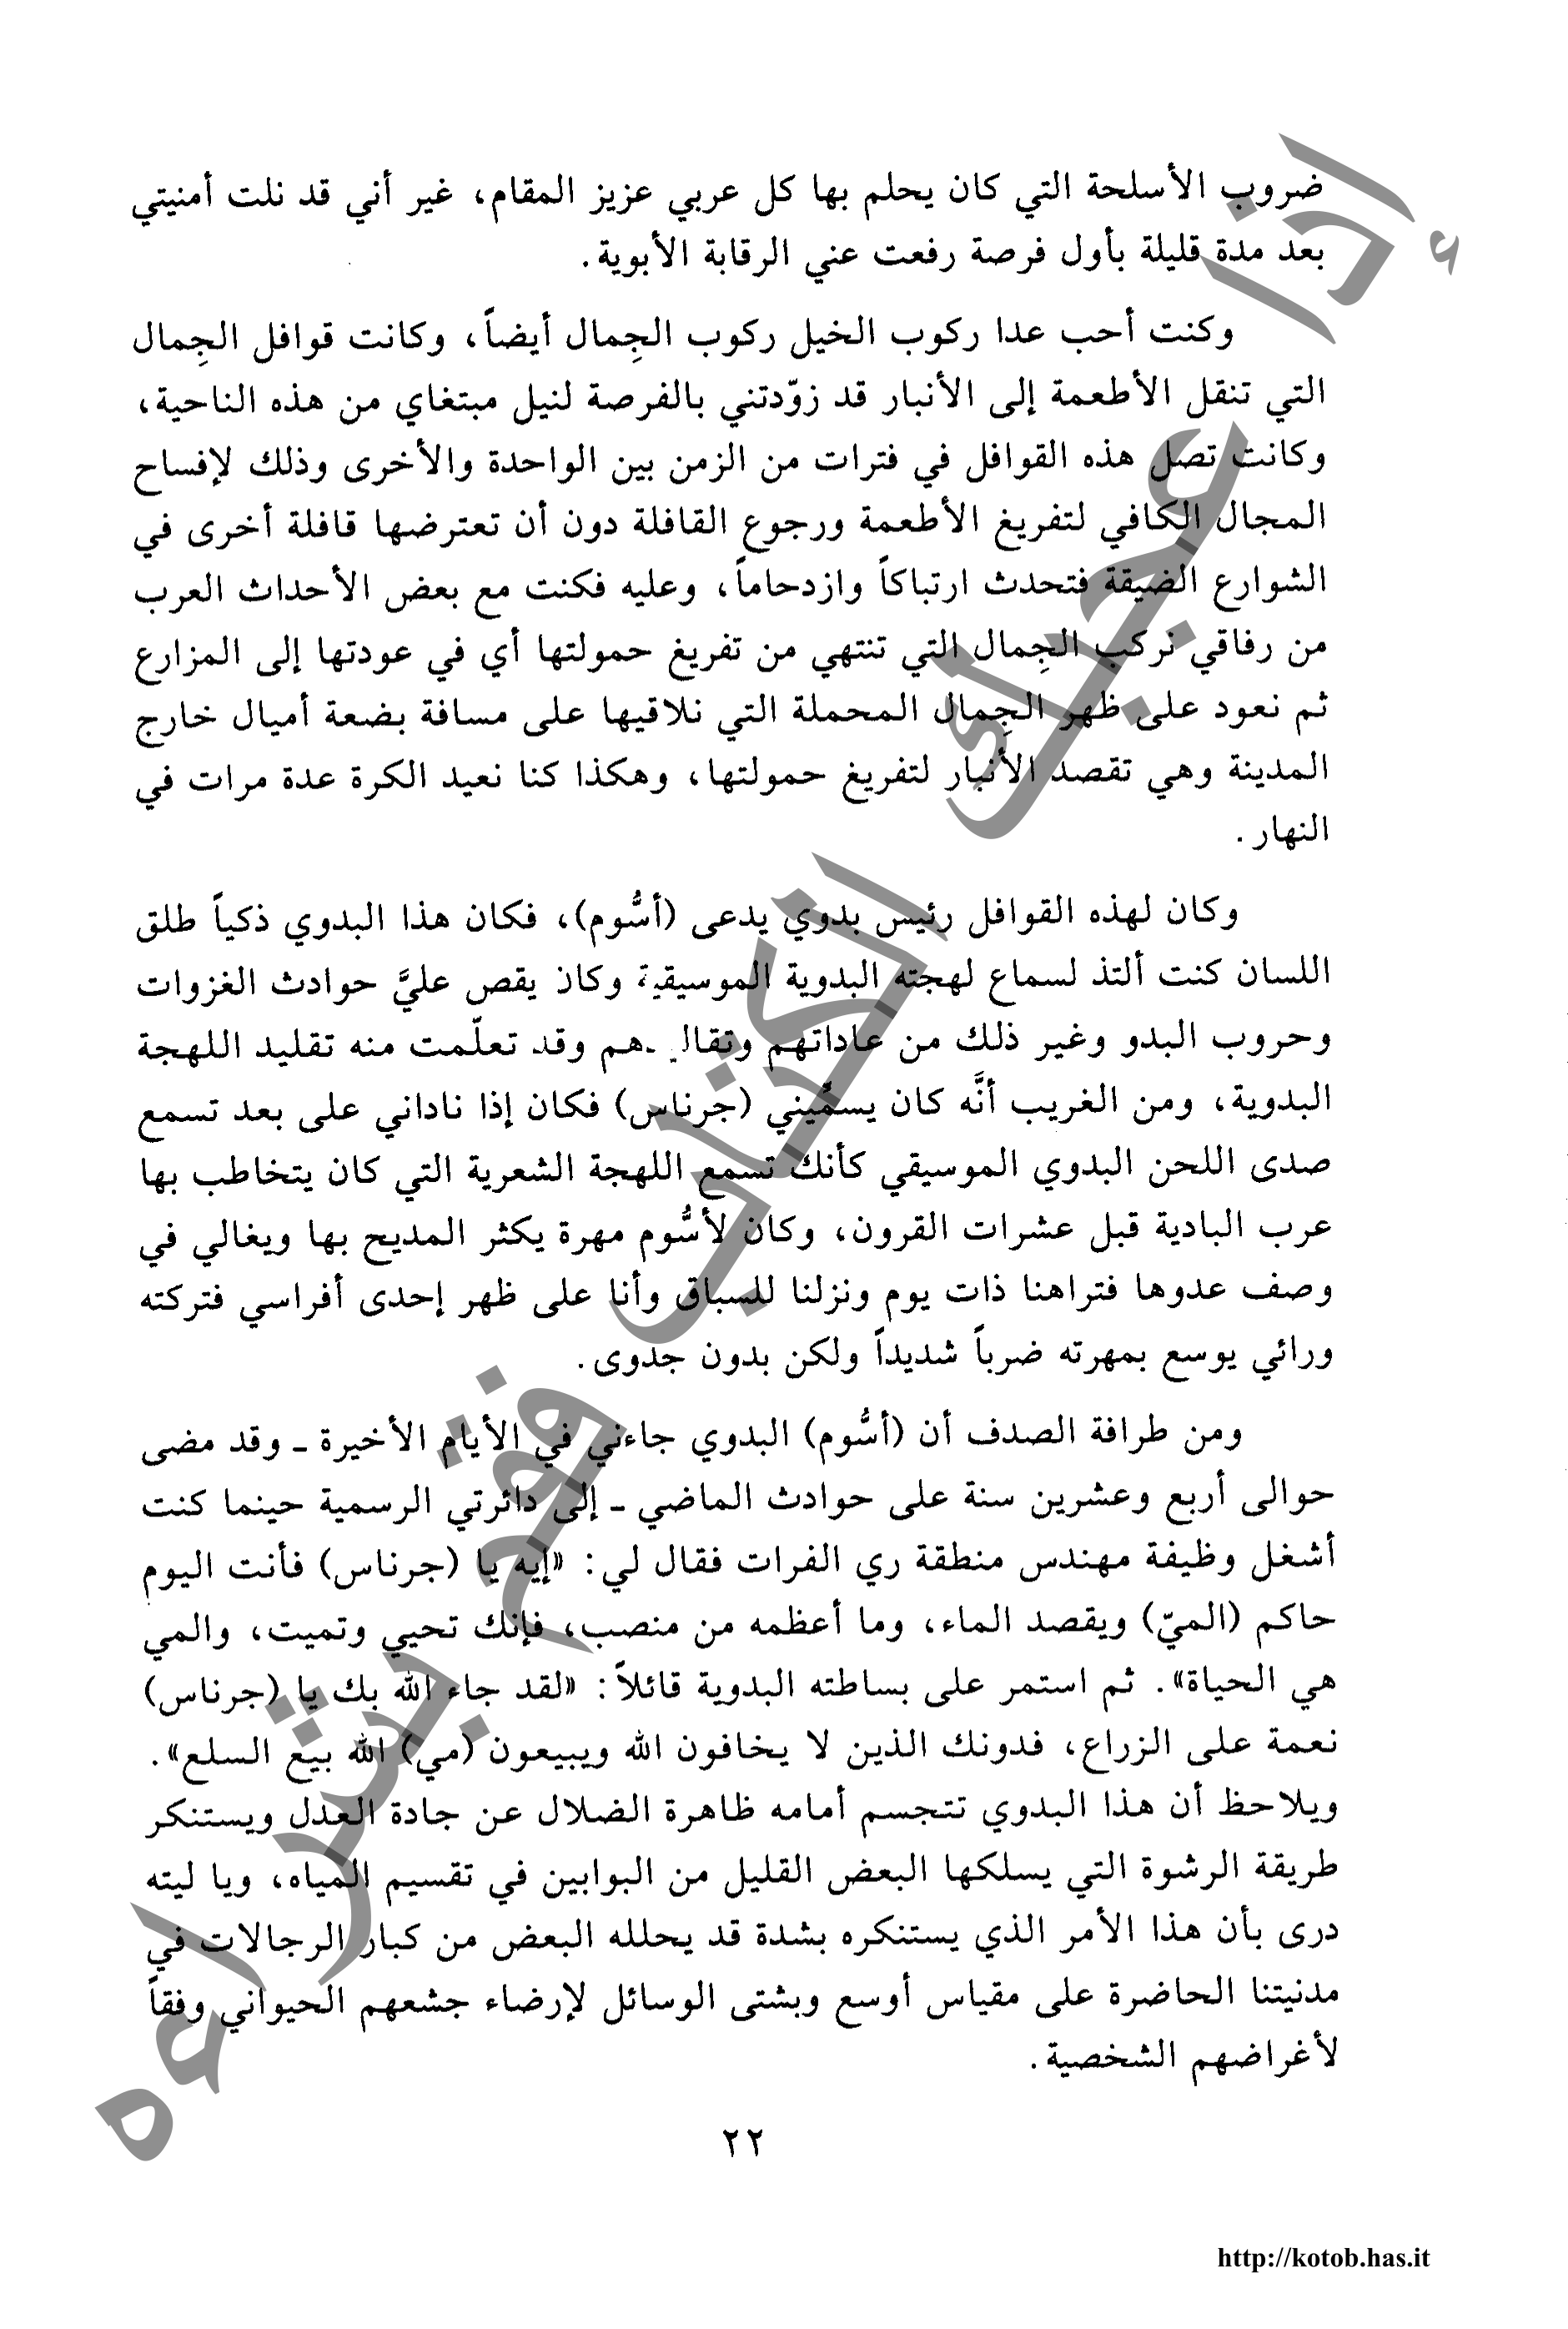 ضروب الأسلحة التي كان يحلم بها كل عربي عزيز المقام، غير أني قد نلت أمنيتي
بعد مدة قليلة بأول فرصة رفعت عني الرقابة الأبوية.
وكنت أحب عدا ركوب الخيل ركوب الجِمال أيضاً، وكانت قوافل الجِمال
التي تنقل الأطعمة إلى الأنبار قد زوّدتني بالفرصة لنيل مبتغاي من هذه الناحية،
وكانت تصل هذه القوافل في فترات من الزمن بين الواحدة والأخرى وذلك لإفساح
المجال الكافي لتفريغ الأطعمة ورجوع القافلة دون أن تعترضها قافلة أخرى في
الشوارع الضيقة فتحدث ارتباكاً وازدحاماً، وعليه فكنت مع بعض الأحداث العرب
من رفاقي نركب الجِمال التي تنتهي من تفريغ حمولتها أي في عودتها إلى المزارع
ثم نعود على ظهر الجِمال المحملة التي نلاقيها على مسافة بضعة أميال خارج
المدينة وهي تقصد الأنبار لتفريغ حمولتها، وهكذا كنا نعيد الكرة عدة مرات في
النهار.
وكان لهذه القوافل رئيس بدوي يدعى (أسُّوم)، فكان هذا البدوي ذكياً طلق
اللسان كنت ألتذ لسماع لهجته البدوية الموسيقية وكان يقص عليَّ حوادث الغزوات
وحروب البدو وغير ذلك من عاداتهم وتقاليدهم وقد تعلّمت منه تقليد اللهجة
البدوية، ومن الغريب أنَّه كان يسمِّيني (جرناس) فكان إذا ناداني على بعد تسمع
صدى اللحن البدوي الموسيقي كأنك تسمع اللهجة الشعرية التي كان يتخاطب بها
عرب البادية قبل عشرات القرون، وكان لأسُّوم مهرة يكثر المديح بها ويغالي في
وصف عدوها فتراهنا ذات يوم ونزلنا للسباق وأنا على ظهر إحدى أفراسي فتركته
ورائي يوسع بمهرته ضرباً شديداً ولكن بدون جدوى.
ومن طرافة الصدف أن (أسُّوم) البدوي جاءني في الأيام الأخيرة ـ وقد مضى
حوالى أربع وعشرين سنة على حوادث الماضي ـ إلى دائرتي الرسمية حينما كنت
أشغل وظيفة مهندس منطقة ري الفرات فقال لي: «إيه يا (جرناس) فأنت اليوم
حاكم (الميّ) ويقصد الماء، وما أعظمه من منصب، فإنك تحيي وتميت، والمي
هي الحياة». ثم استمر على بساطته البدوية قائلاً: «لقد جاء الله بك يا (جرناس)
نعمة على الزراع، فدونك الذين لا يخافون الله ويبيعون (مي) الله بيع السلع».
ويلاحظ أن هذا البدوي تتجسم أمامه ظاهرة الضلال عن جادة العدل ويستنكر
طريقة الرشوة التي يسلكها البعض القليل من البوابين في تقسيم المياه، ويا ليته
درى بأن هذا الأمر الذي يستنكره بشدة قد يحلله البعض من كبار الرجالات في
مدنيتنا الحاضرة على مقياس أوسع وبشتى الوسائل لإرضاء جشعهم الحيواني وفقاً
لأغراضهم الشخصية.
٢٢
إذا أعجبك الكتاب فقم بشراءه
http://kotob.has.it